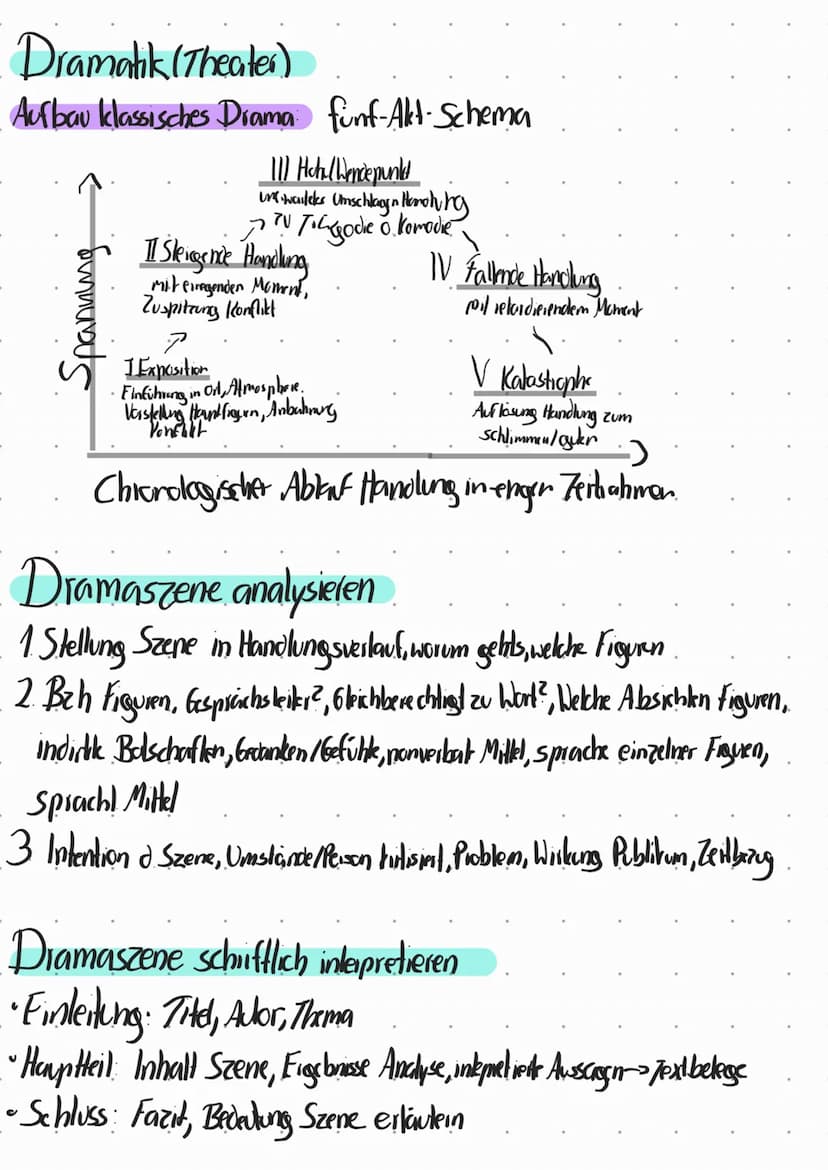 Dramatik (Theater)
Aufbau klassisches Drama: fünf-Akt-Schema
III Höhe/Wendepunkt
unerwartetes Umschlagen Handlung
zu Tragödie o. Komödie
II Steigende Handlung
mit erregenden Moment,
Zuspitzung Konflikt
IV Fallende Handlung
mit retardierendem Moment
Spannung
I Exposition
Einführung in Ort, Atmosphere.
Vorstellung Hauptfiguren, Anbahnung
Konflikt
V Katastrophe
Auflösung Handlung zum
schlimmen/guten
Chronologischer Ablauf Handlung in engen Zeitrahmen
Dramaszene analysieren
1 Stellung Szene in Handlungsverlauf, worum gehts, welche Figuren
2. Bzh Figuren, Gesprächsleiter?, Gleichberechtigt zu Wort?, Welche Absichten Figuren,
indirekte Botschaften, Gedanken/Gefühle, nonverbale Mittel, sprache einzelner Figuren,
sprachl Mittel
3 Intention d Szene, Umstände/Person kritisiert, Problem, Wirkung Publikum, Zeitbezug
Dramaszene schriftlich interpretieren
• Einleitung: Titel, Autor, Thema
• Hauptteil: Inhalt Szene, Ergebnisse Analyse, interpretierte Aussagen -> Textbelege
• Schluss: Fazit, Bedeutung Szene erläutern